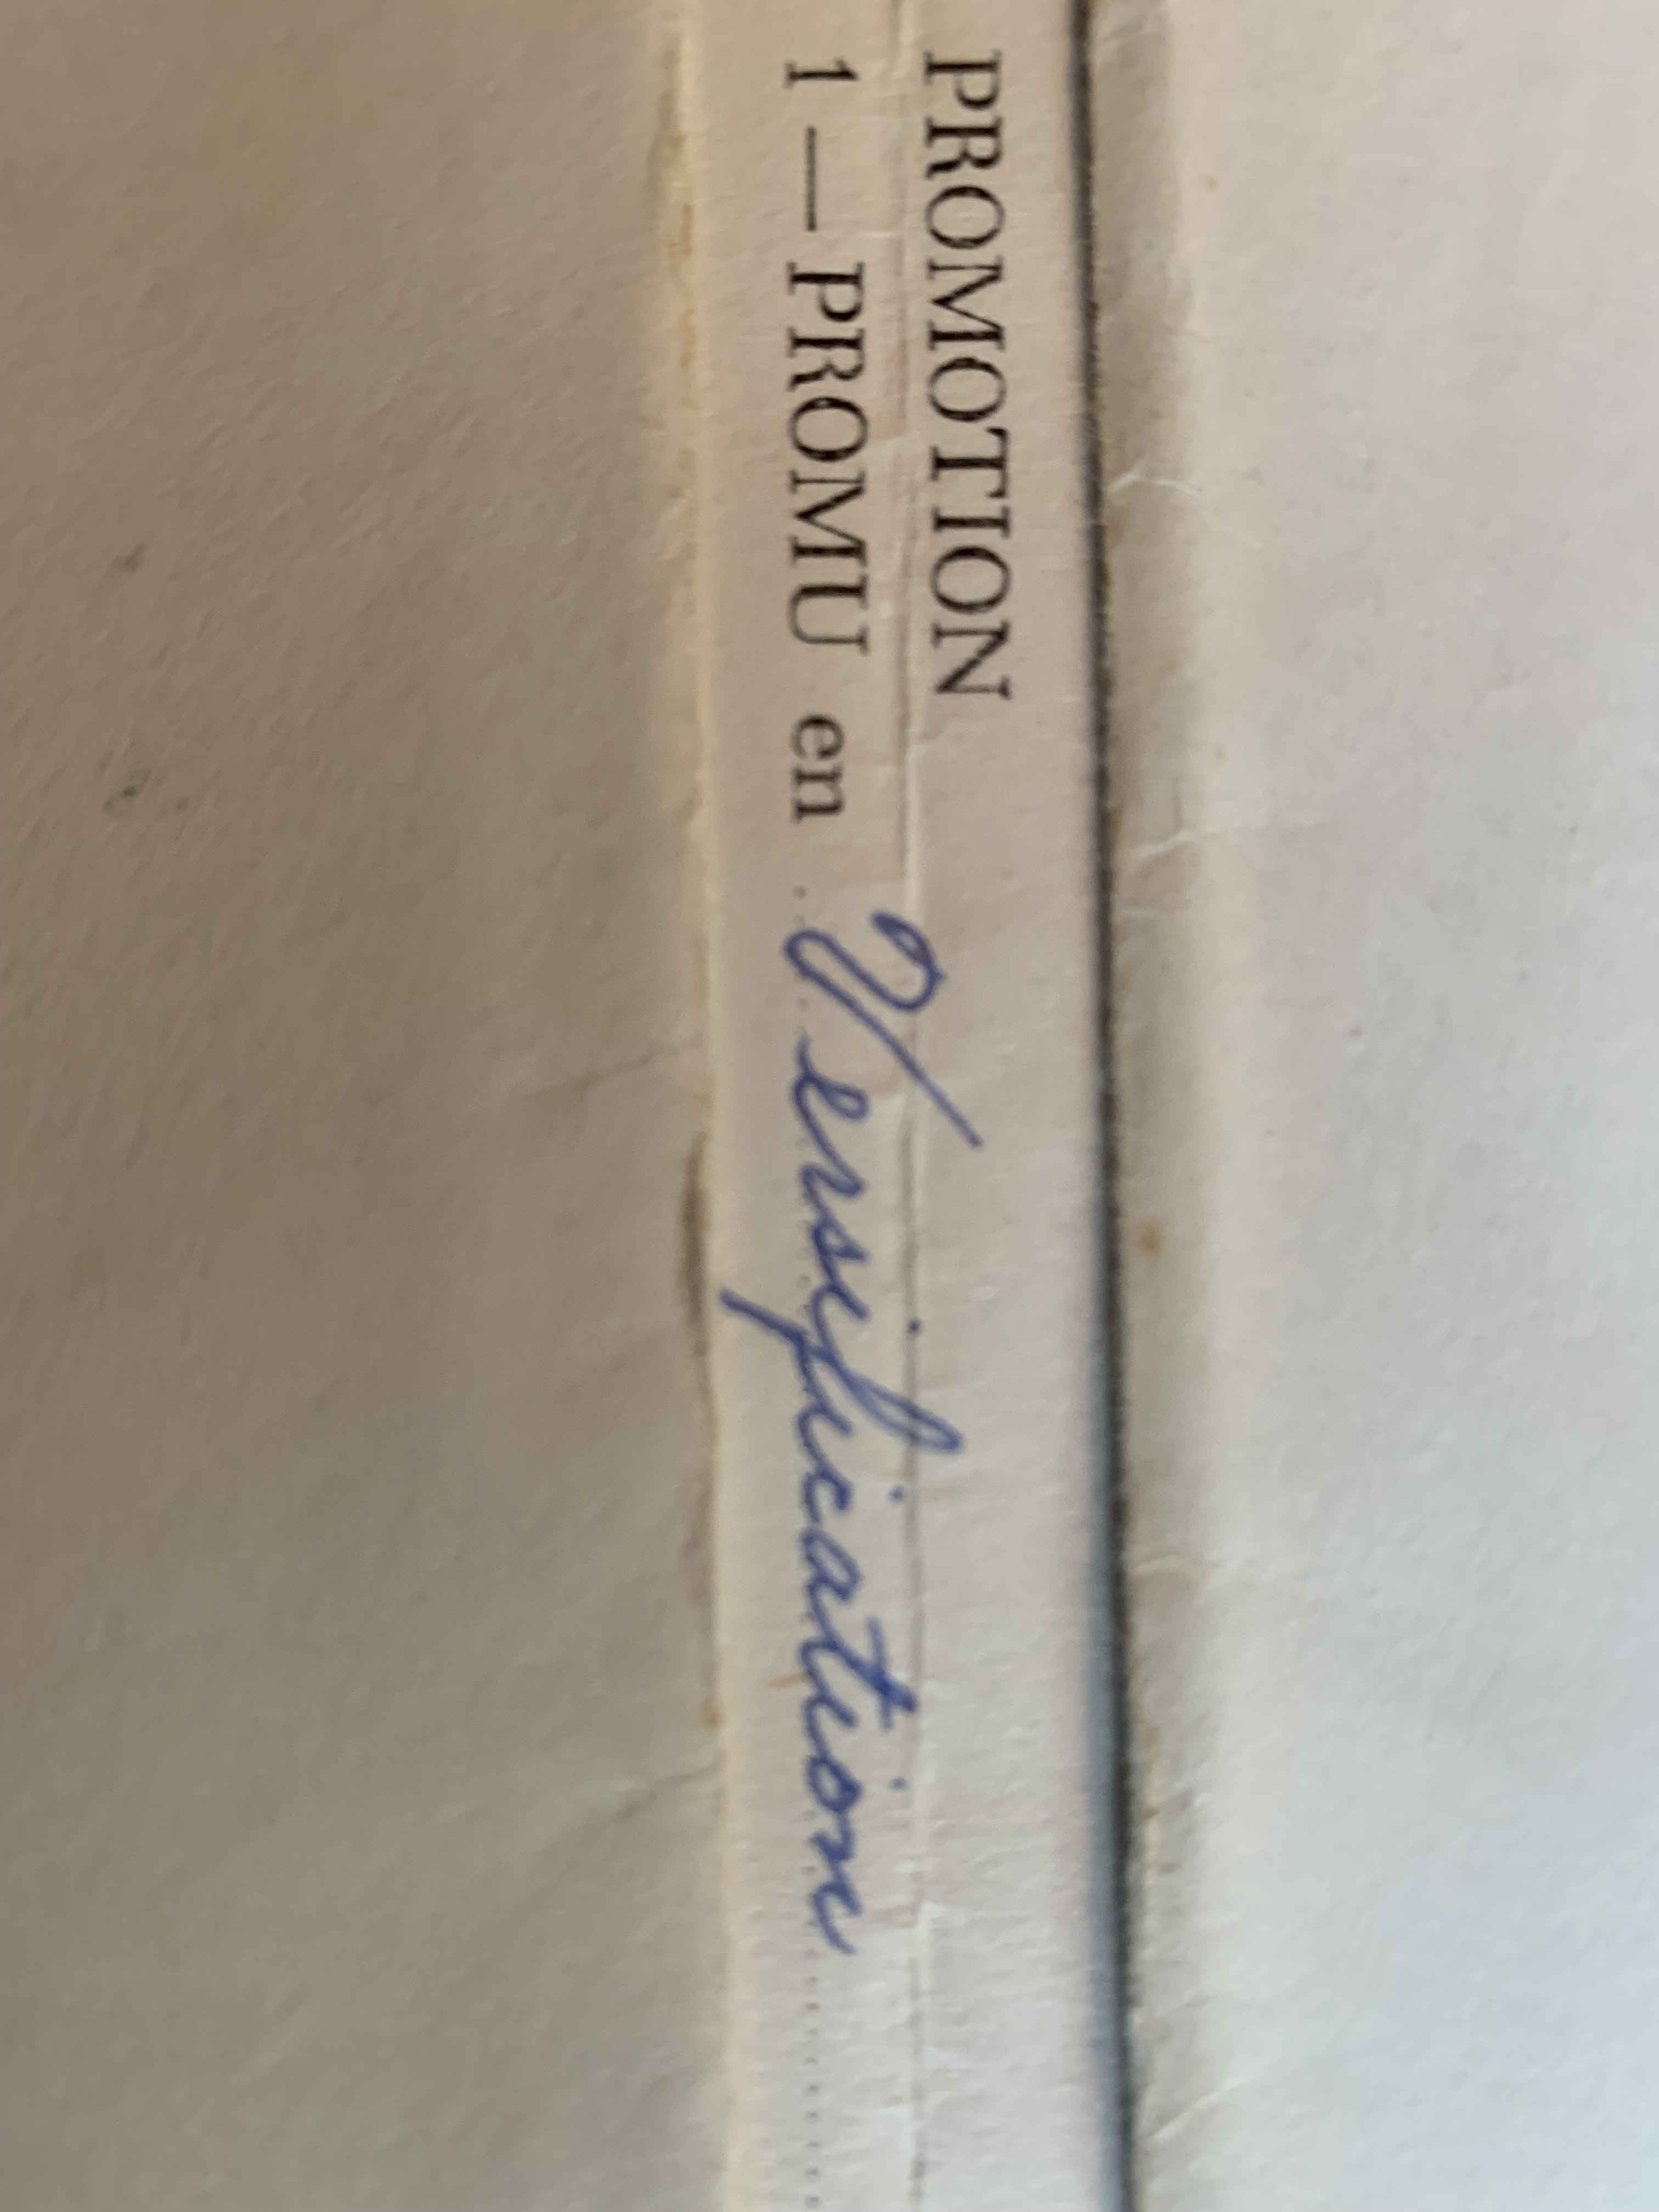 PROMOTION
1 — PROMU en Versification